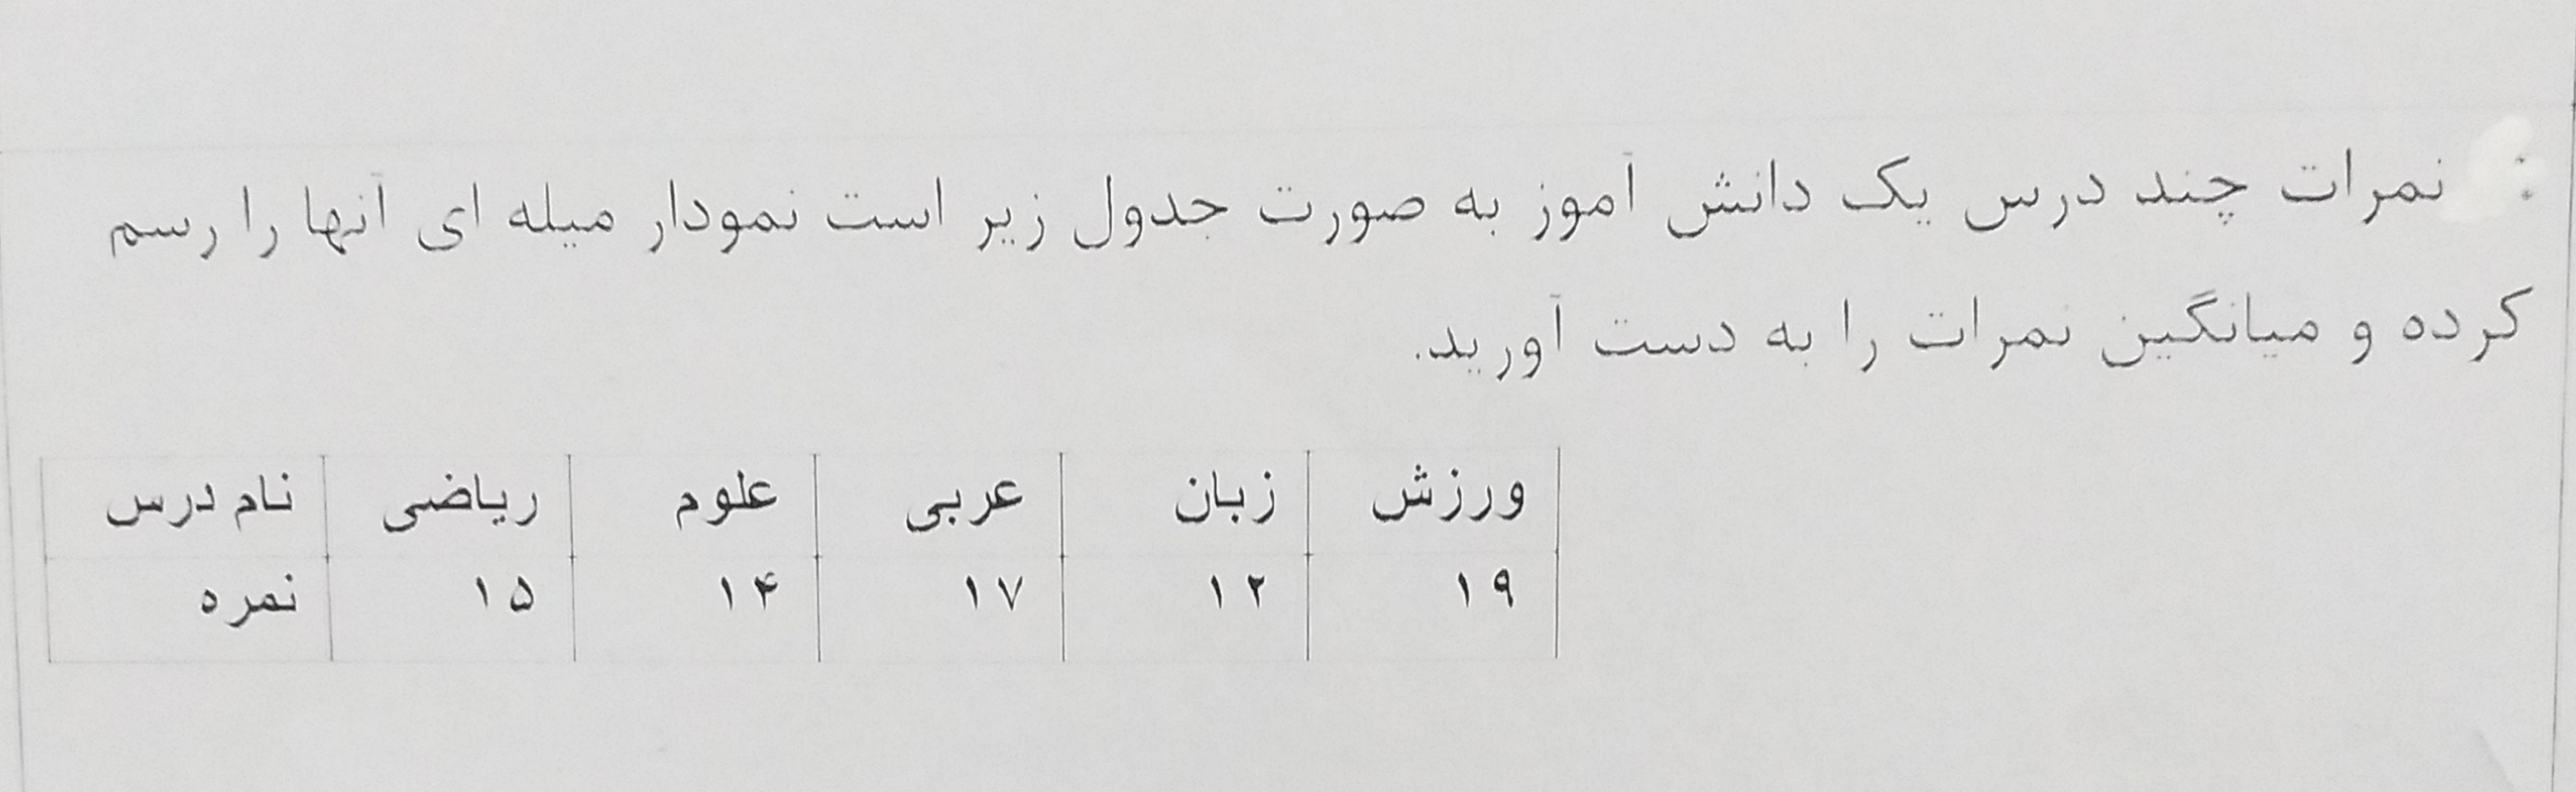 نمرات چند درس یک دانش آموز به صورت جدول زیر است نمودار میله ای آنها را رسم
کرده و میانگین نمرات را به دست آورید.
ورزش زبان عربی علوم ریاضی نام درس
۱۹ ۱۲ ۱۷ ۱۴ ۱۵ نمره